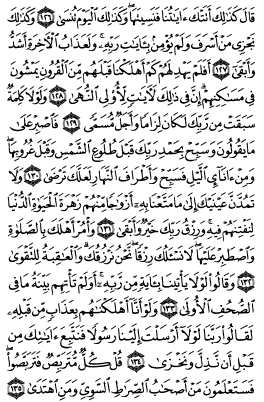 قَالَ كَذَٰلِكَ أَتَتْكَ ءَايَٰتُنَا فَنَسِيتَهَا وَكَذَٰلِكَ ٱلْيَوْمَ تُنسَىٰ ١٢٦ وَكَذَٰلِكَ
نَجْزِى مَنْ أَسْرَفَ وَلَمْ يُؤْمِنۢ بِـَٔايَٰتِ رَبِّهِۦ وَلَعَذَابُ ٱلْءَاخِرَةِ أَشَدُّ
وَأَبْقَىٰٓ ١٢٧ أَفَلَمْ يَهْدِ لَهُمْ كَمْ أَهْلَكْنَا قَبْلَهُم مِّنَ ٱلْقُرُونِ يَمْشُونَ
فِى مَسَٰكِنِهِمْ إِنَّ فِى ذَٰلِكَ لَءَايَٰتٍ لِّأُو۟لِى ٱلنُّهَىٰ ١٢٨ وَلَوْلَا كَلِمَةٌ
سَبَقَتْ مِن رَّبِّكَ لَكَانَ لِزَامًا وَأَجَلٌ مُّسَمًّى ١٢٩ فَٱصْبِرْ عَلَىٰ
مَا يَقُولُونَ وَسَبِّحْ بِحَمْدِ رَبِّكَ قَبْلَ طُلُوعِ ٱلشَّمْسِ وَقَبْلَ غُرُوبِهَا
وَمِنْ ءَانَآئِ ٱلَّيْلِ فَسَبِّحْ وَأَطْرَافَ ٱلنَّهَارِ لَعَلَّكَ تَرْضَىٰ ١٣٠ وَلَا
تَمُدَّنَّ عَيْنَيْكَ إِلَىٰ مَا مَتَّعْنَا بِهِۦٓ أَزْوَٰجًا مِّنْهُمْ زَهْرَةَ ٱلْحَيَوٰةِ ٱلدُّنْيَا
لِنَفْتِنَهُمْ فِيهِ وَرِزْقُ رَبِّكَ خَيْرٌ وَأَبْقَىٰ ١٣١ وَأْمُرْ أَهْلَكَ بِٱلصَّلَوٰةِ
وَٱصْطَبِرْ عَلَيْهَا لَا نَسْـَٔلُكَ رِزْقًا نَّحْنُ نَرْزُقُكَ وَٱلْعَٰقِبَةُ لِلتَّقْوَىٰ
١٣٢ وَقَالُوا۟ لَوْلَا يَأْتِينَا بِـَٔايَةٍ مِّن رَّبِّهِۦٓ أَوَلَمْ تَأْتِهِم بَيِّنَةُ مَا فِى
ٱلصُّحُفِ ٱلْأُولَىٰ ١٣٣ وَلَوْ أَنَّآ أَهْلَكْنَٰهُم بِعَذَابٍ مِّن قَبْلِهِۦ
لَقَالُوا۟ رَبَّنَا لَوْلَآ أَرْسَلْتَ إِلَيْنَا رَسُولًا فَنَتَّبِعَ ءَايَٰتِكَ مِن
قَبْلِ أَن نَّذِلَّ وَنَخْزَىٰ ١٣٤ قُلْ كُلٌّ مُّتَرَبِّصٌ فَتَرَبَّصُوا۟
فَسَتَعْلَمُونَ مَنْ أَصْحَٰبُ ٱلصِّرَٰطِ ٱلسَّوِىِّ وَمَنِ ٱهْتَدَىٰ ١٣٥